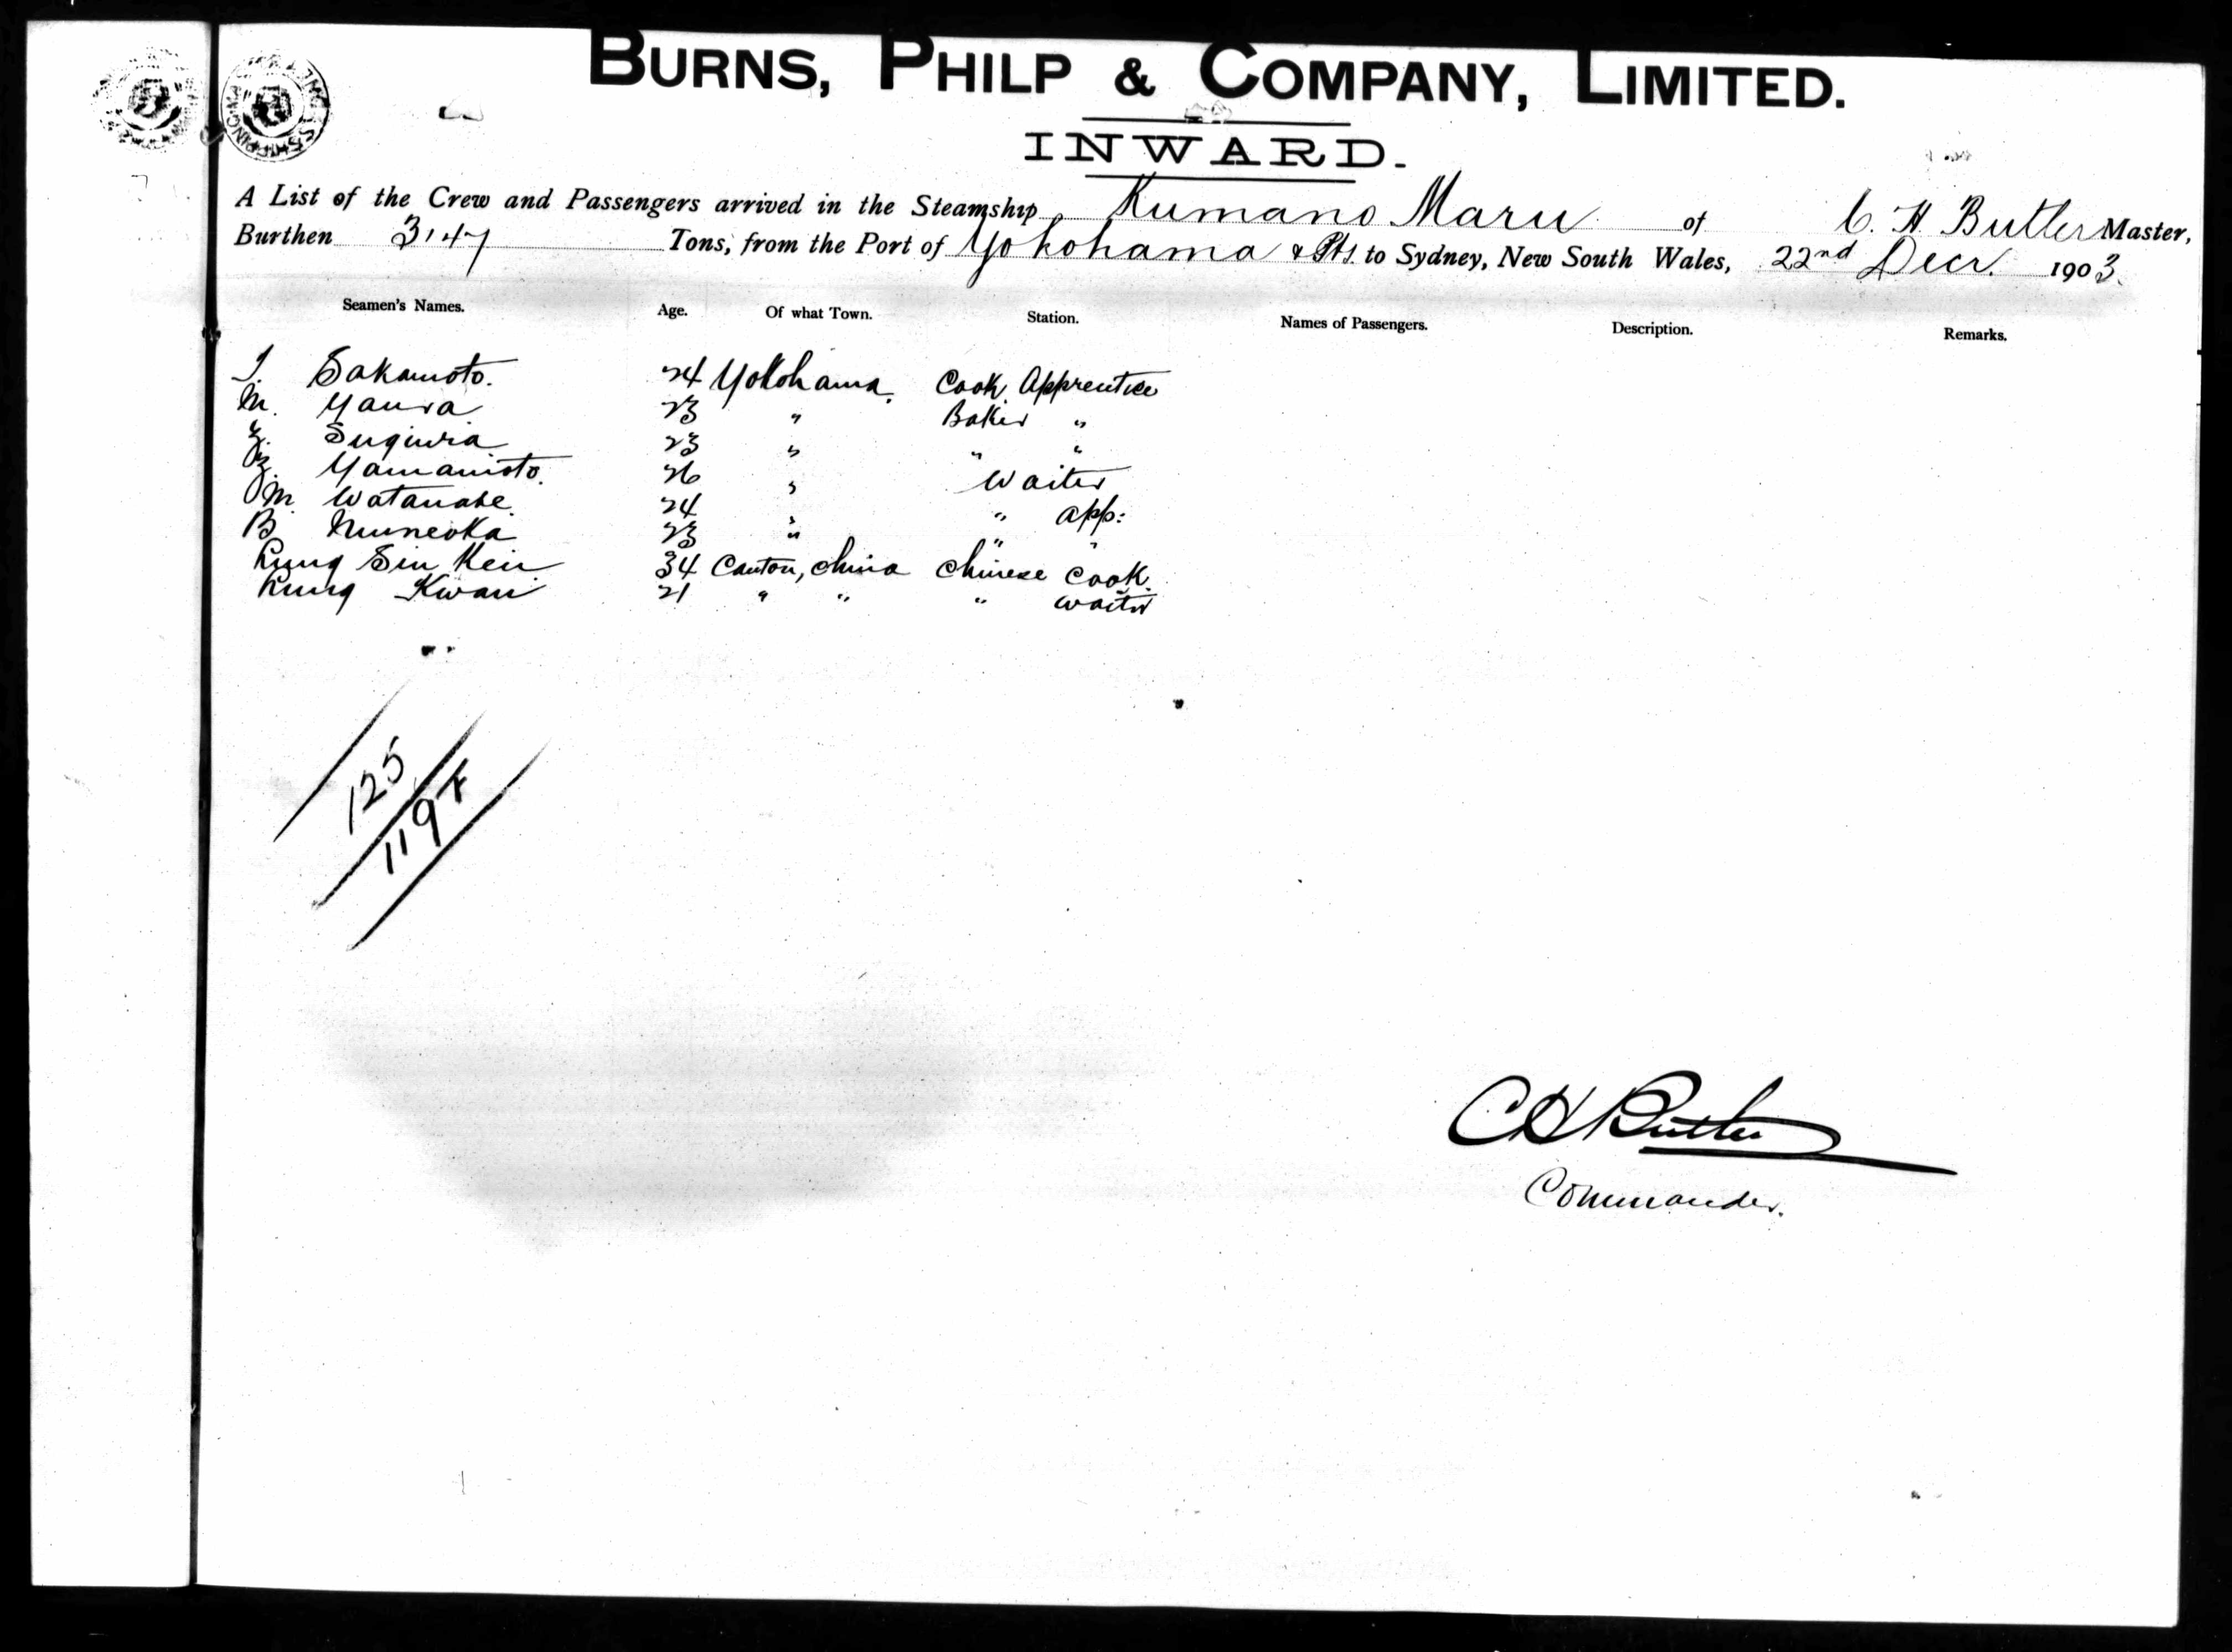 BURNS, PHILP & COMPANY, LIMITED.
INWARD.
A List of the Crew and Passengers arrived in the Steamship Kumano Maru of C. H. Butler Master,
Burthen 3147 Tons, from the Port of Yokohama & Pts. to Sydney, New South Wales, 22nd Decr. 1903.
Seamen's Names. Age. Of what Town. Station. Names of Passengers. Description. Remarks.
Sakamoto. 24 Yokohama. Cook Apprentice
M. 23 " Baker "
Sugiura 23 " " "
Yamamoto. 26 " Waiter
M. Watanabe. 24 " " App:
B. Muneoka 23 " " "
Kung Sin Ken 34 Canton, China Chinese Cook.
Kung Kwan 21 " " " waiter
125
119
C H Butler
Commander.